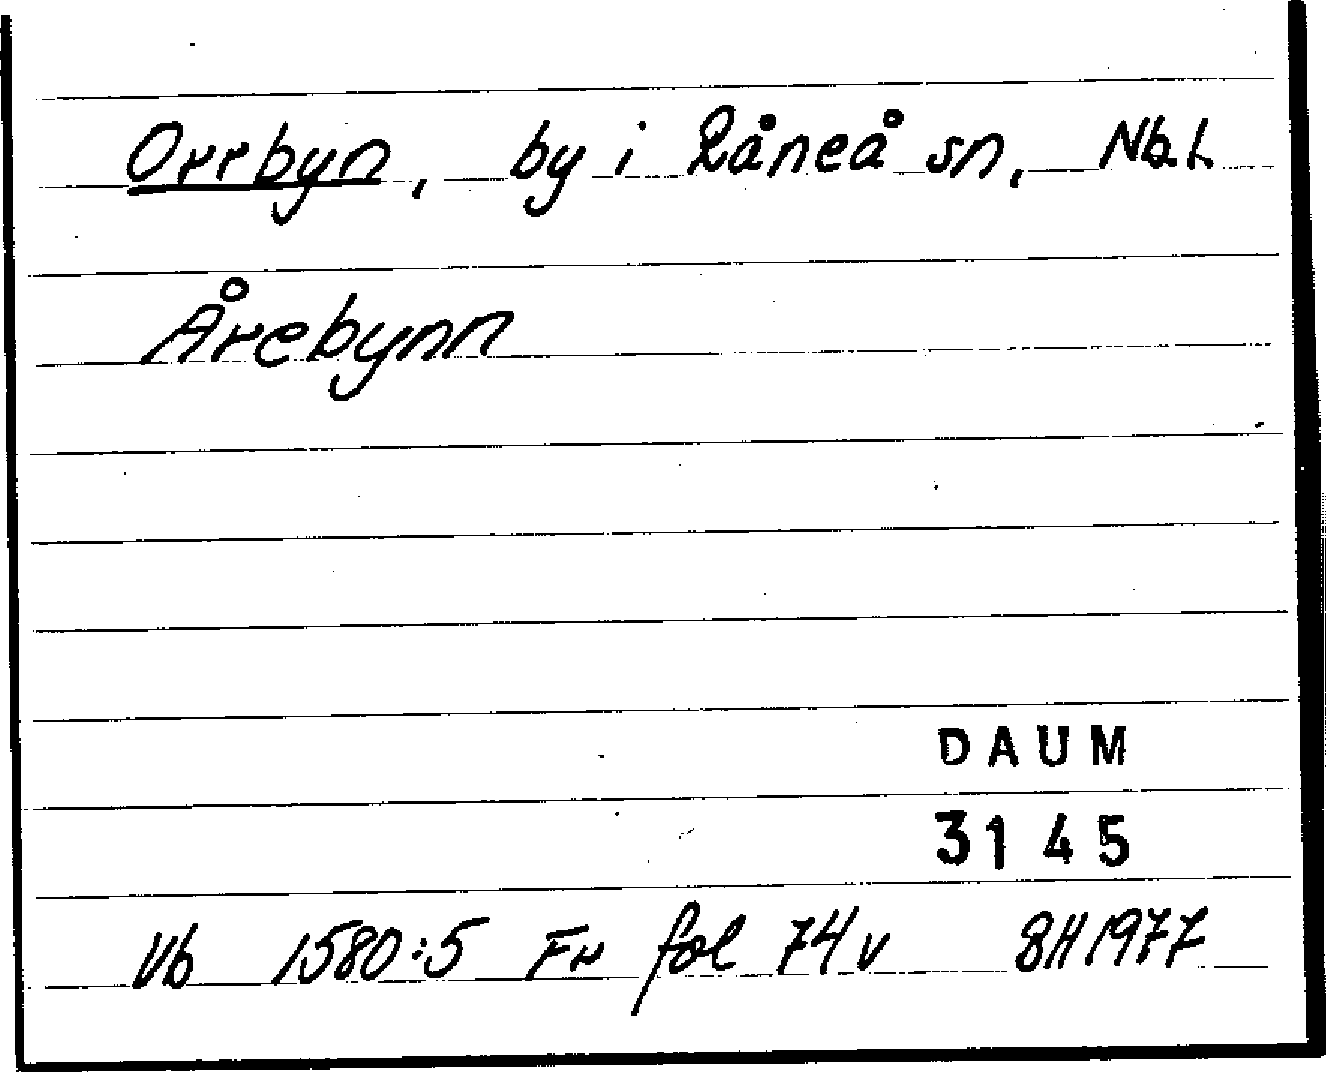 Orrbyn, by i Råneå sn, Nb.L
Årebynn
DAUM
3145
Vb 1580:5 Fr fol 74v BH 1977